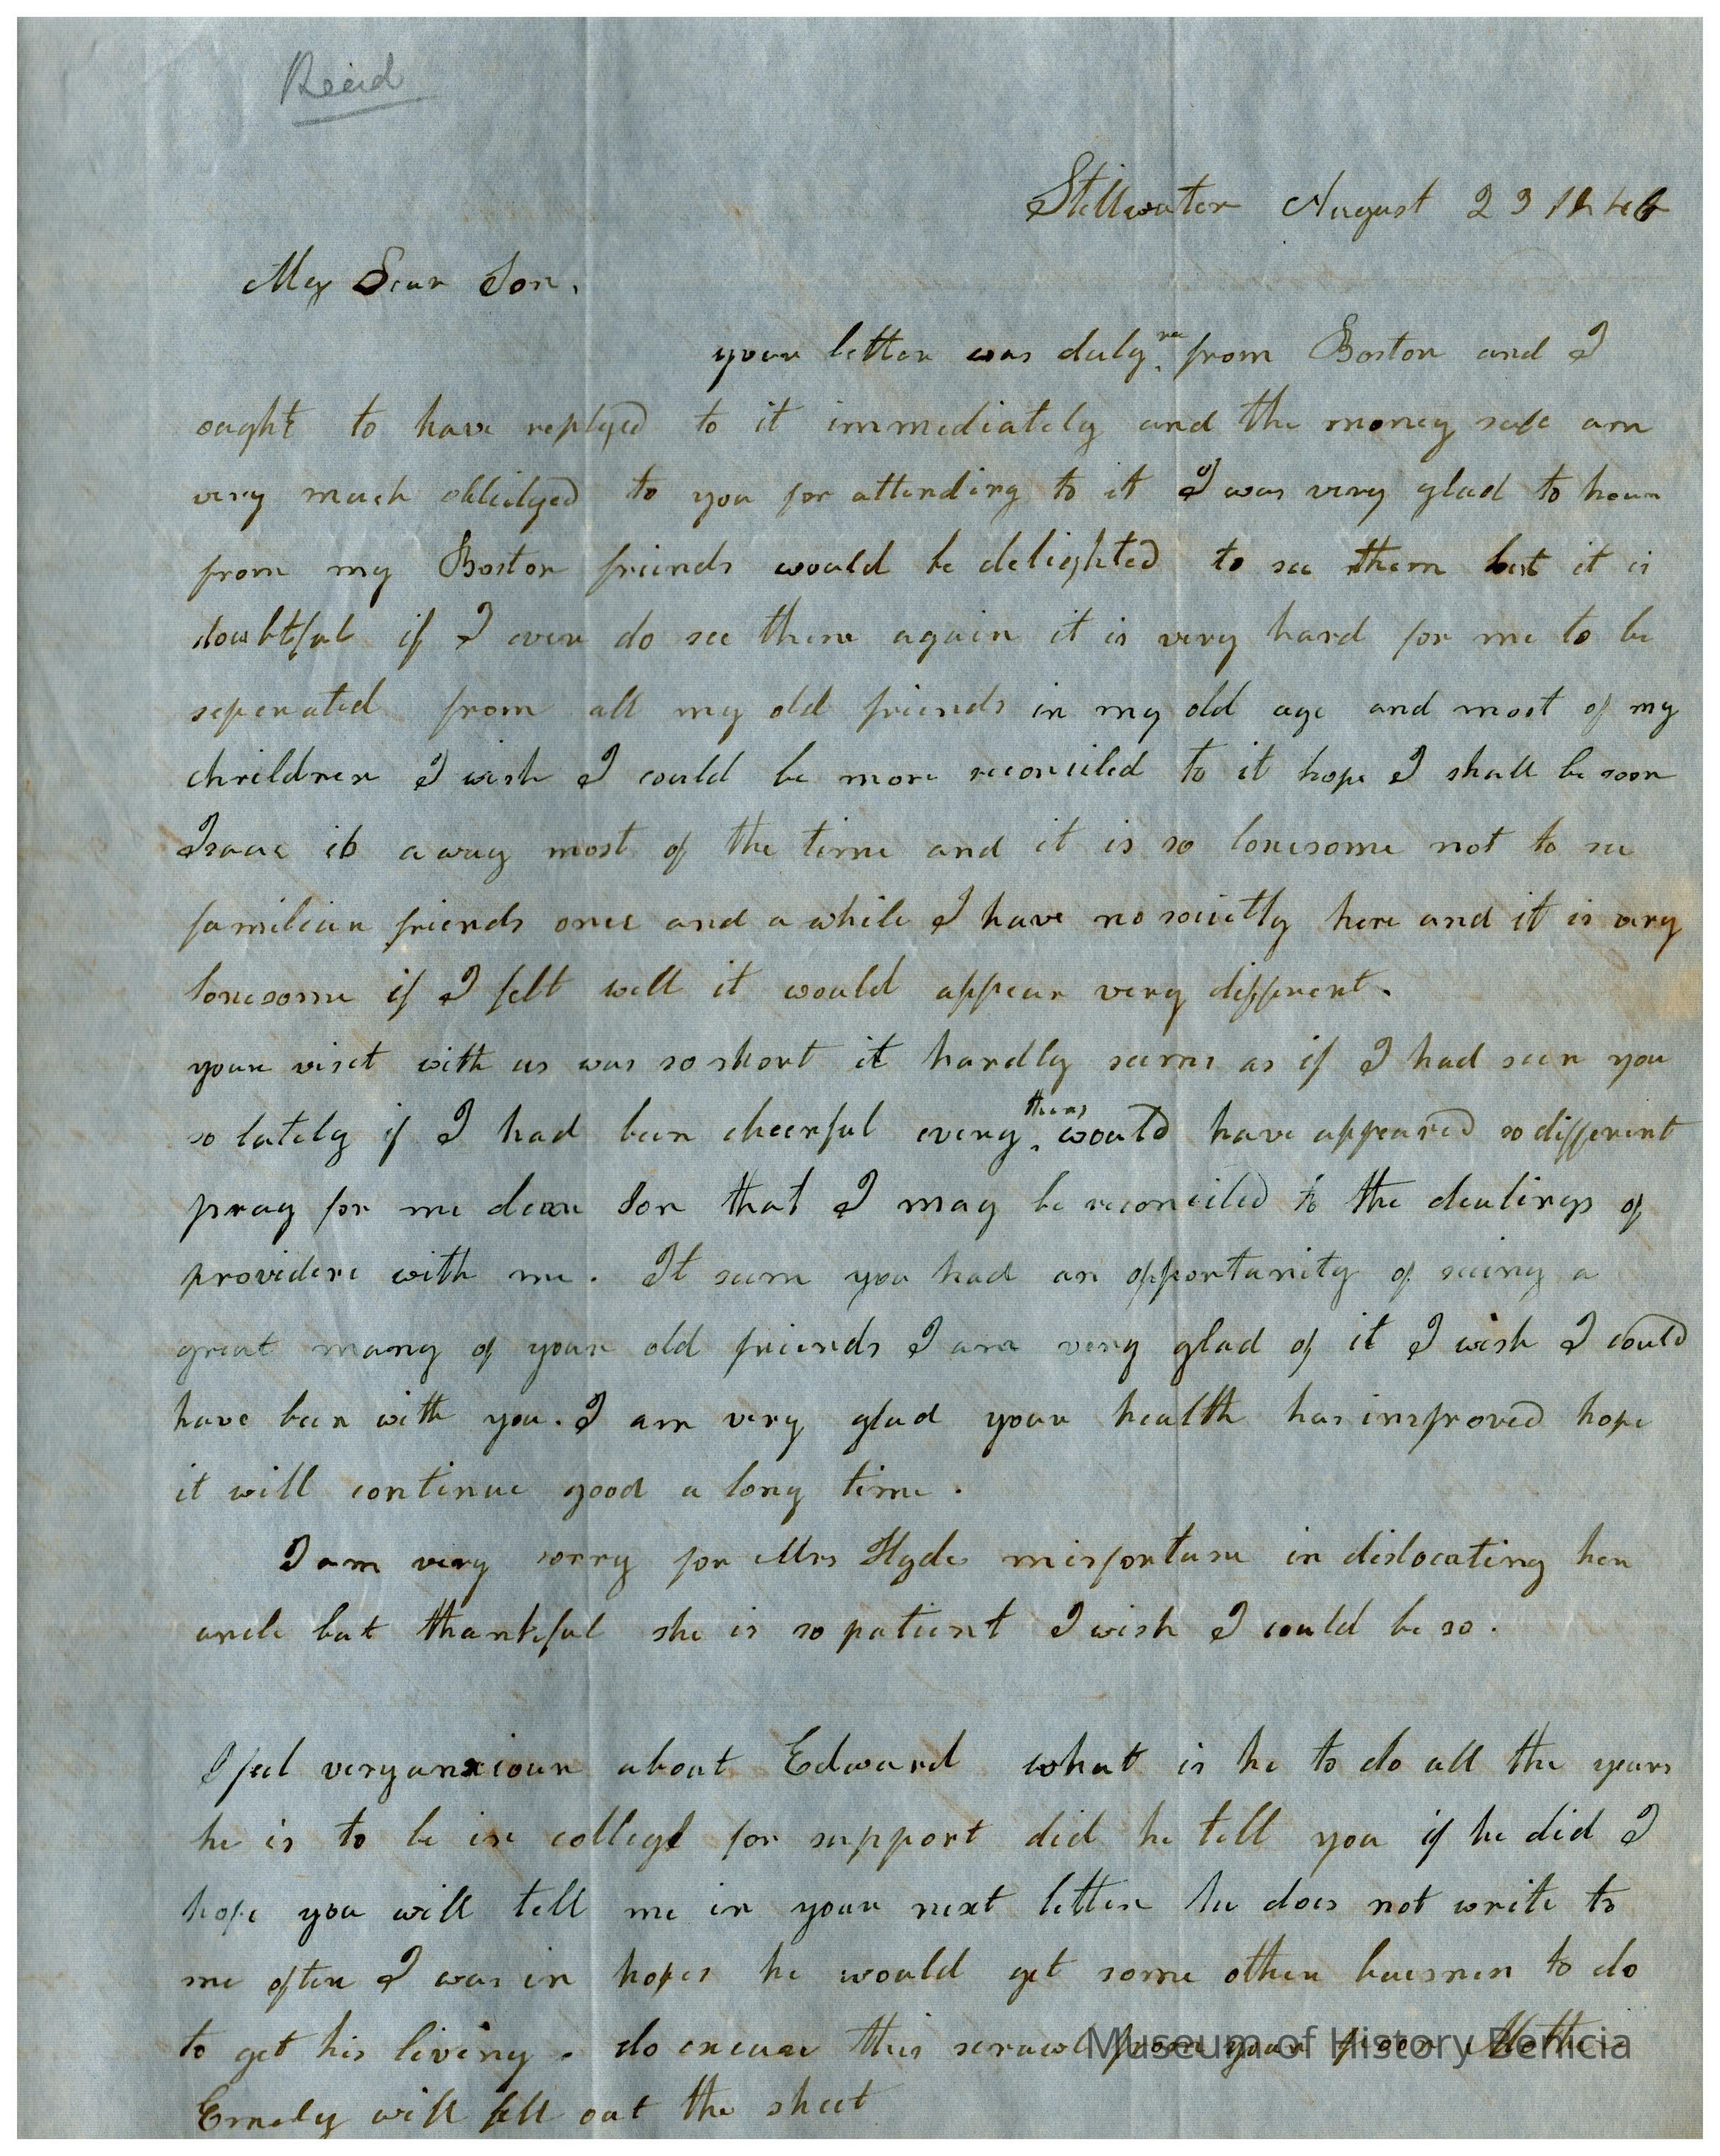 Reid
Stillwater August 23 1846
My Dear Son,
your letter was duly re from Boston and I
ought to have replyed to it immediately and the money safe am
very much oblidged to you for attending to it I was very glad to hear
from my Boston friends would be delighted to see them but it is
doubtful if I ever do see them again it is very hard for me to be
seperated from all my old friends in my old age and most of my
children I wish I could be more reconciled to it hope I shall be soon
Isaac is away most of the time and it is so lonesome not to see
familiar friends once and a while I have no socielty here and it is very
lonesome if I felt well it would appear very different.
your visit with us was so short it hardly seems as if I had seen you
so lately if I had been cheerful every thing would have appeared so different
pray for me dear Son that I may be reconciled to the dealings of
providene with me. It seem you had an opportunity of seeing a
great many of your old friends I am very glad of it I wish I could
have been with you. I am very glad your health has improved hope
it will continue good a long time.
I am very sorry for Mrs Hydes misfortune in dislocating her
ancle but thankful she is so patient I wish I could be so.
I feel very anxious about Edward what is he to do all the years
he is to be in college for support did he tell you if he did I
hope you will tell me in your next letter he does not write to
me often I was in hopes he would get some other buisness to do
to get his living. do excuse this scrawl from your poor Mother
Emely will fill out the sheet
Museum of History Benicia